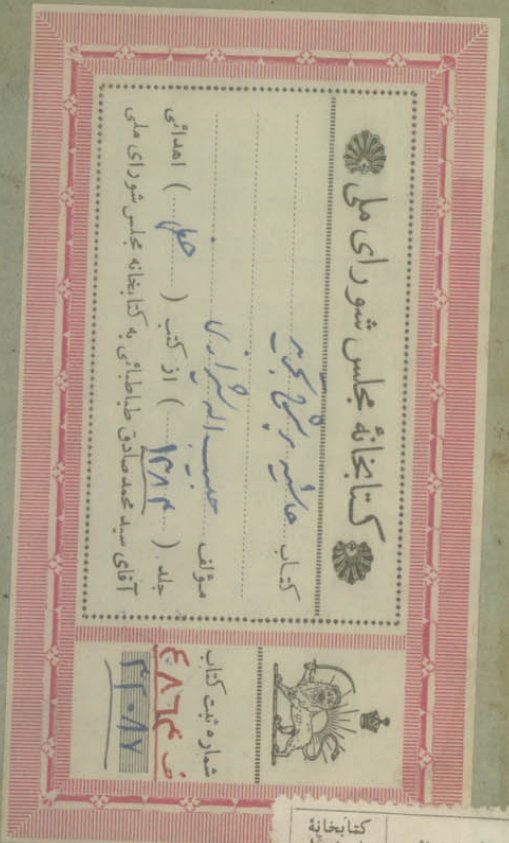 کتابخانهٔ مجلس شورای ملی
کتاب حاشیه بر شرح تجرید
مؤلف حبیب الله شیرازی
جلد (۱۲۸۴) از کتب (خطی) اهدائی
آقای سید محمد صادق طباطبائی به کتابخانه مجلس شورای ملی
شماره ثبت کتاب
۳۲۰۸۷
کتابخانهٔ